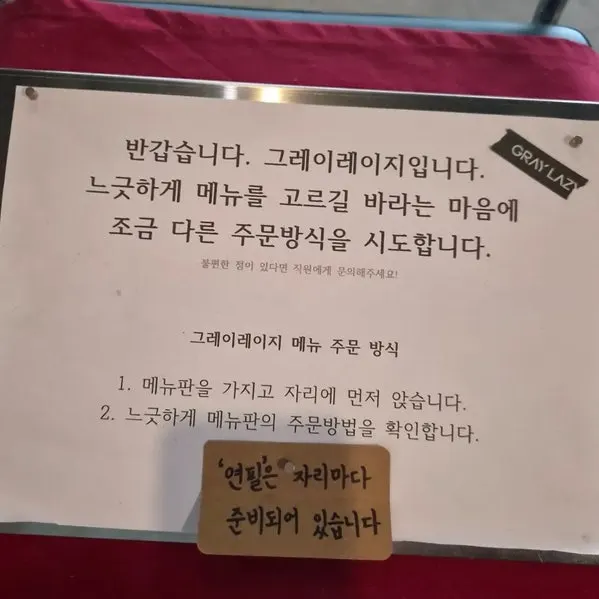 반갑습니다. 그레이레이지입니다.
GRAY LAZY
느긋하게 메뉴를 고르길 바라는 마음에
조금 다른 주문방식을 시도합니다.
불편한 점이 있다면 직원에게 문의해주세요!
그레이레이지 메뉴 주문 방식
1. 메뉴판을 가지고 자리에 먼저 앉습니다.
2. 느긋하게 메뉴판의 주문방법을 확인합니다.
'연필'은 자리마다
준비되어 있습니다